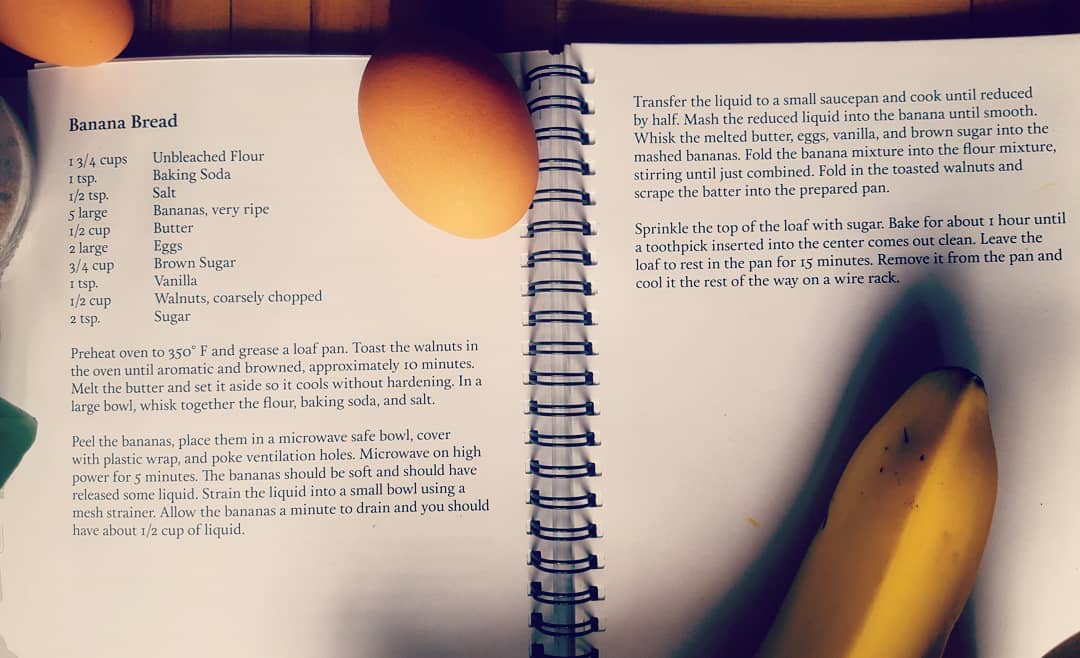 Banana Bread
1 3/4 cups Unbleached Flour
1 tsp. Baking Soda
1/2 tsp. Salt
5 large Bananas, very ripe
1/2 cup Butter
2 large Eggs
3/4 cup Brown Sugar
1 tsp. Vanilla
1/2 cup Walnuts, coarsely chopped
2 tsp. Sugar
Preheat oven to 350° F and grease a loaf pan. Toast the walnuts in
the oven until aromatic and browned, approximately 10 minutes.
Melt the butter and set it aside so it cools without hardening. In a
large bowl, whisk together the flour, baking soda, and salt.
Peel the bananas, place them in a microwave safe bowl, cover
with plastic wrap, and poke ventilation holes. Microwave on high
power for 5 minutes. The bananas should be soft and should have
released some liquid. Strain the liquid into a small bowl using a
mesh strainer. Allow the bananas a minute to drain and you should
have about 1/2 cup of liquid.
Transfer the liquid to a small saucepan and cook until reduced
by half. Mash the reduced liquid into the banana until smooth.
Whisk the melted butter, eggs, vanilla, and brown sugar into the
mashed bananas. Fold the banana mixture into the flour mixture,
stirring until just combined. Fold in the toasted walnuts and
scrape the batter into the prepared pan.
Sprinkle the top of the loaf with sugar. Bake for about 1 hour until
a toothpick inserted into the center comes out clean. Leave the
loaf to rest in the pan for 15 minutes. Remove it from the pan and
cool it the rest of the way on a wire rack.